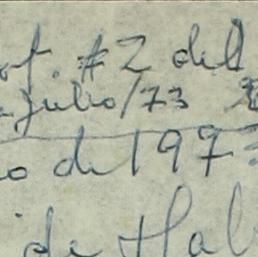 of. #2 del
Julio/73
o de 197
de Hab